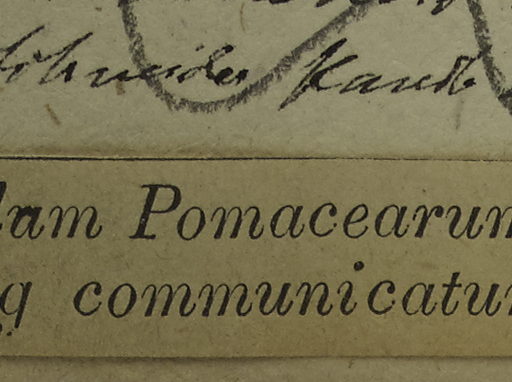 Schneider Handb
dam Pomacearum
g communicatur